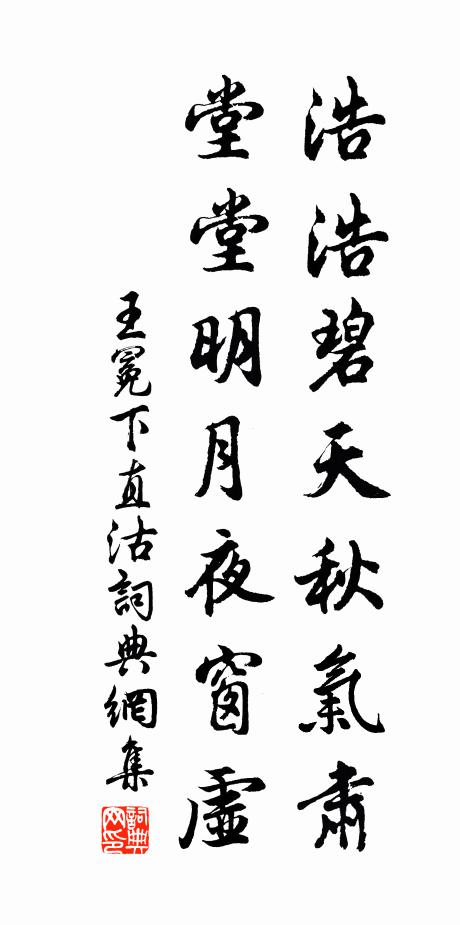 浩浩碧天秋氣肅
堂堂明月夜窗虛
王冕下直沽詞典網集
詞典網印